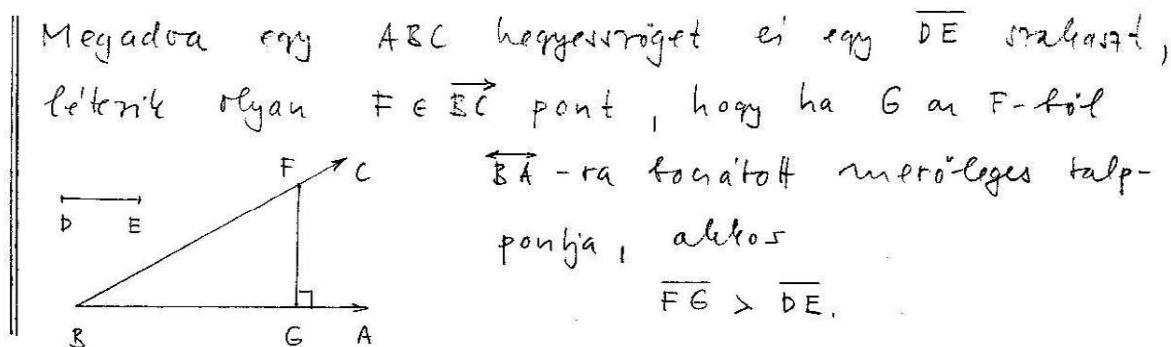 Megadva egy ABC hegyesszöget és egy DE szakaszt,
létezik olyan F ∈ BC pont, hogy ha G az F-ből
BA-ra bocsátott merőleges talp-
pontja, akkor
FG > DE.
F C
D E
B G A